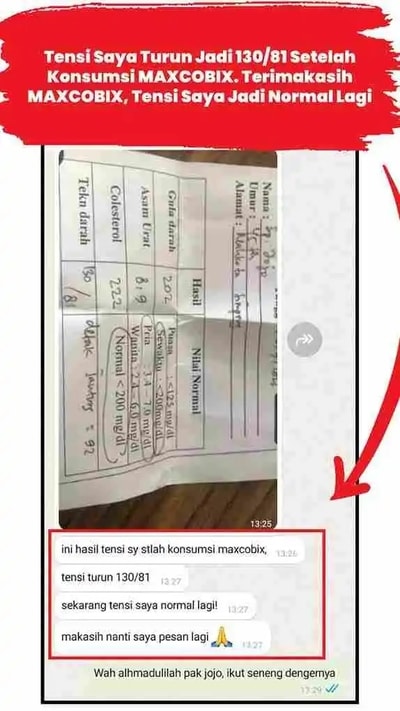 Tensi Saya Turun Jadi 130/81 Setelah
Konsumsi MAXCOBIX. Terimakasih
MAXCOBIX, Tensi Saya Jadi Normal Lagi
Nama :
Umur :
Alamat :
Hasil
Nilai Normal
Gula darah
202
Puasa : <125 mg/dl
Sewaktu : <200mg/dl
Asam Urat
8.9
Pria : 3,4 - 7,0 mg/dl
Wanita : 2,4 - 6,0 mg/dl
Colesterol
222
Normal < 200 mg/dl
Tekn darah
130/81
detak jantung = 92
13:25
ini hasil tensi sy stlah konsumsi maxcobix,
13:26
tensi turun 130/81
13:27
sekarang tensi saya normal lagi!
13:27
makasih nanti saya pesan lagi 🙏
13:27
Wah alhmadulilah pak jojo, ikut seneng dengernya
13:29